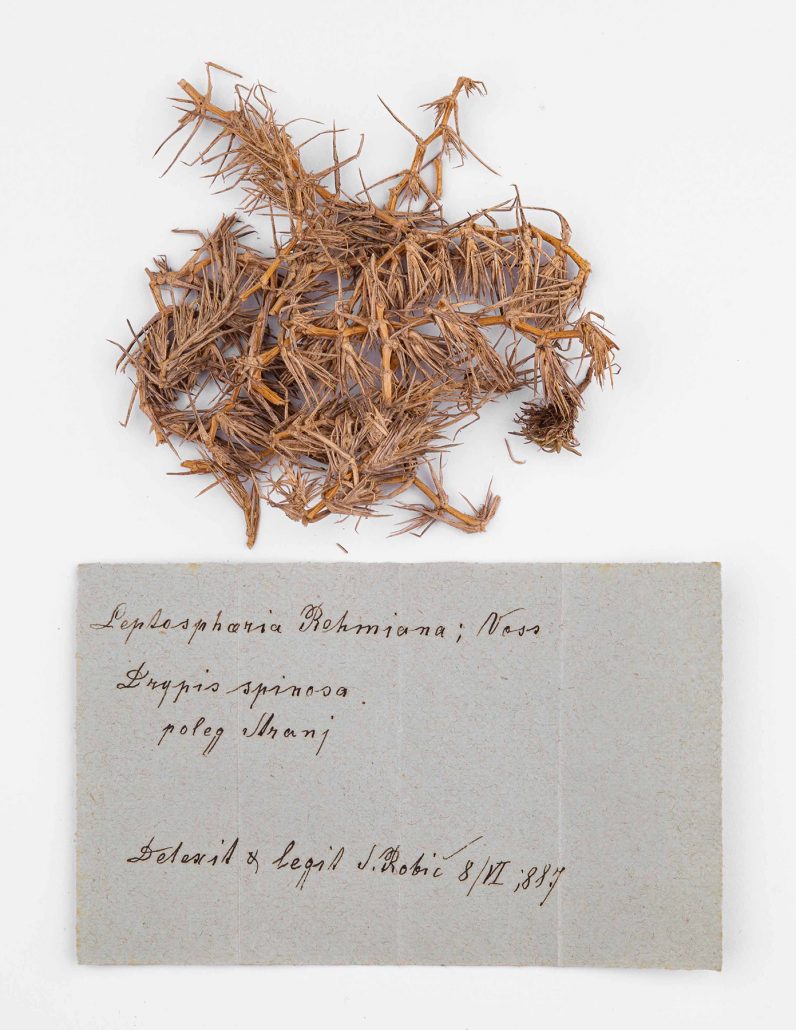 Leptosphæria Rehmiana; Voss
Drypis spinosa.
poleg Stranj
Detexit & legit S. Robič 8/VI ;887